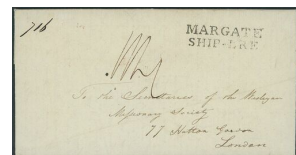 716
MARGATE
SHIP-LRE
To the Secretaries of the Wesleyan
Missionary Society
77 Hatton Garden
London